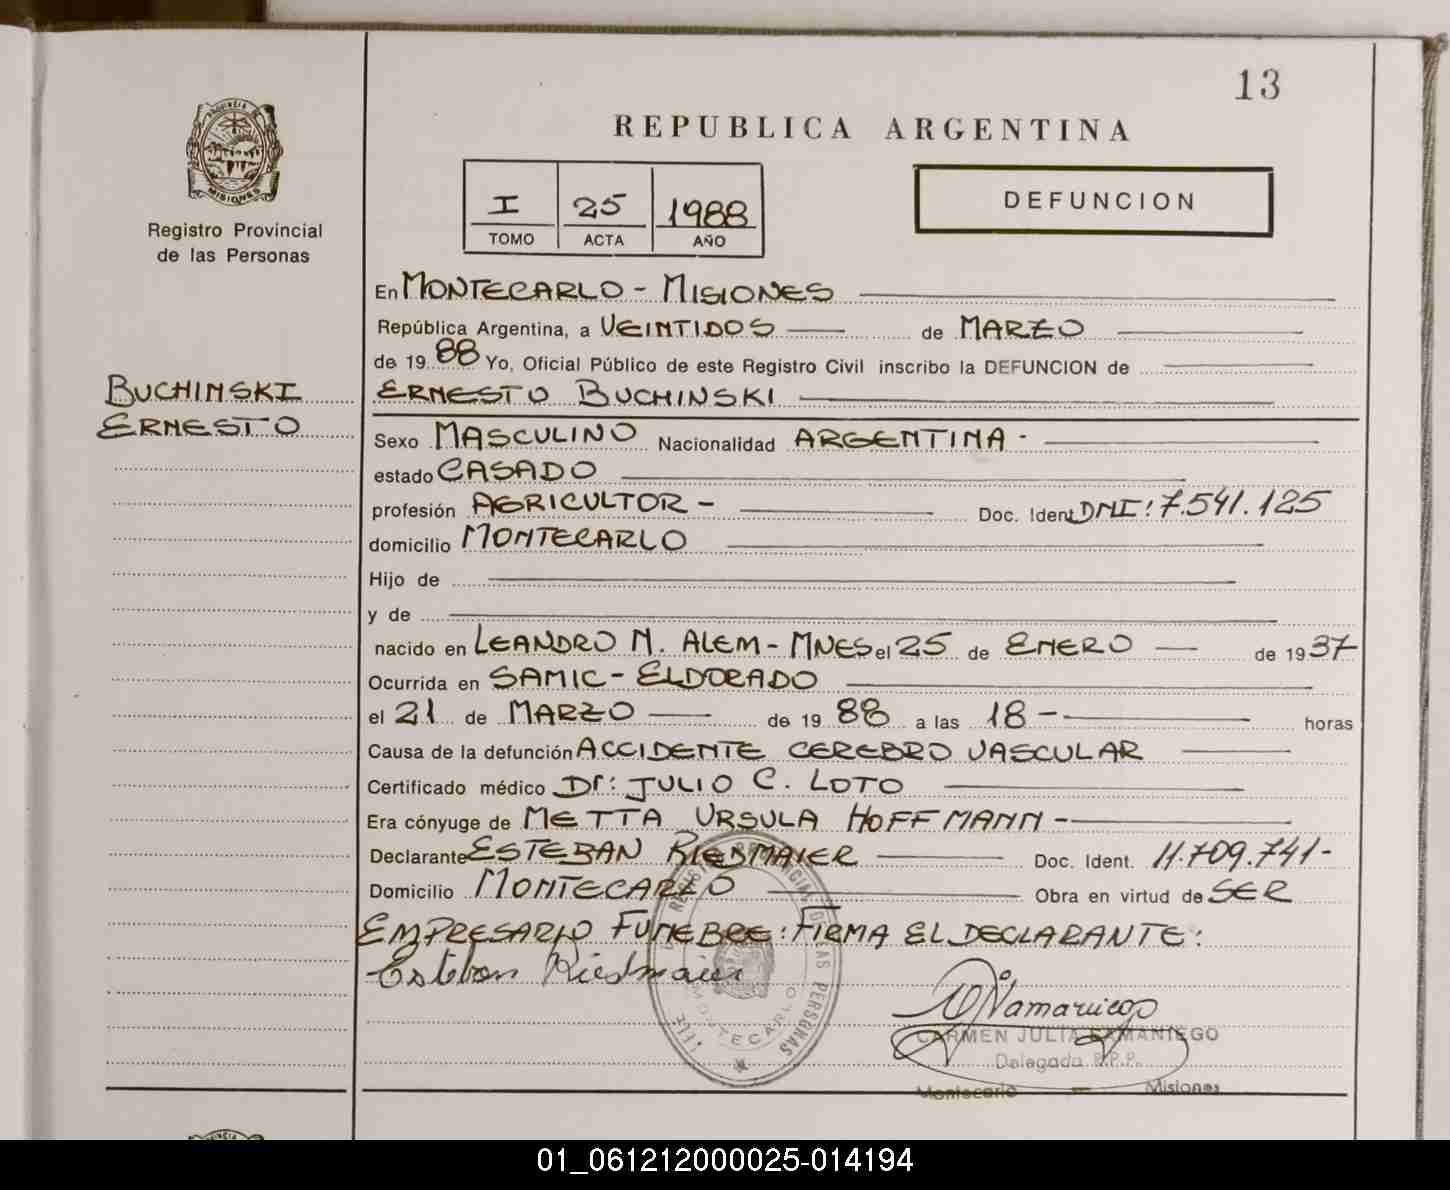 13
REPUBLICA ARGENTINA
PROVINCIA DE
MISIONES
Registro Provincial
de las Personas
I 25 1988
TOMO ACTA AÑO
DEFUNCION
En MONTECARLO - MISIONES
República Argentina, a VEINTIDOS de MARZO
de 19 88 Yo, Oficial Público de este Registro Civil inscribo la DEFUNCION de
BUCHINSKI
ERNESTO
ERNESTO BUCHINSKI
Sexo MASCULINO Nacionalidad ARGENTINA -
estado CASADO
profesión AGRICULTOR - Doc. Ident DNI: 7.541.125
domicilio MONTECARLO
Hijo de
y de
nacido en LEANDRO N. ALEM - MNES el 25 de ENERO de 19 37
Ocurrida en SAMIC - ELDORADO
el 21 de MARZO de 19 88 a las 18 - horas
Causa de la defunción ACCIDENTE CEREBRO VASCULAR
Certificado médico Dr: JULIO C. LOTO
Era cónyuge de METTA URSULA HOFFMANN -
Declarante ESTEBAN RIEDMAIER Doc. Ident. 11.709.741-
Domicilio MONTECARLO Obra en virtud de SER
EMPRESARIO FUNEBRE: FIRMA EL DECLARANTE:
Esteban Riedmaier
REGISTRO PROVINCIAL DE LAS PERSONAS
MONTECARLO
CARMEN JULIA SAMANIEGO
Delegada R.P.P.
Montecarlo - Misiones
01_061212000025-014194